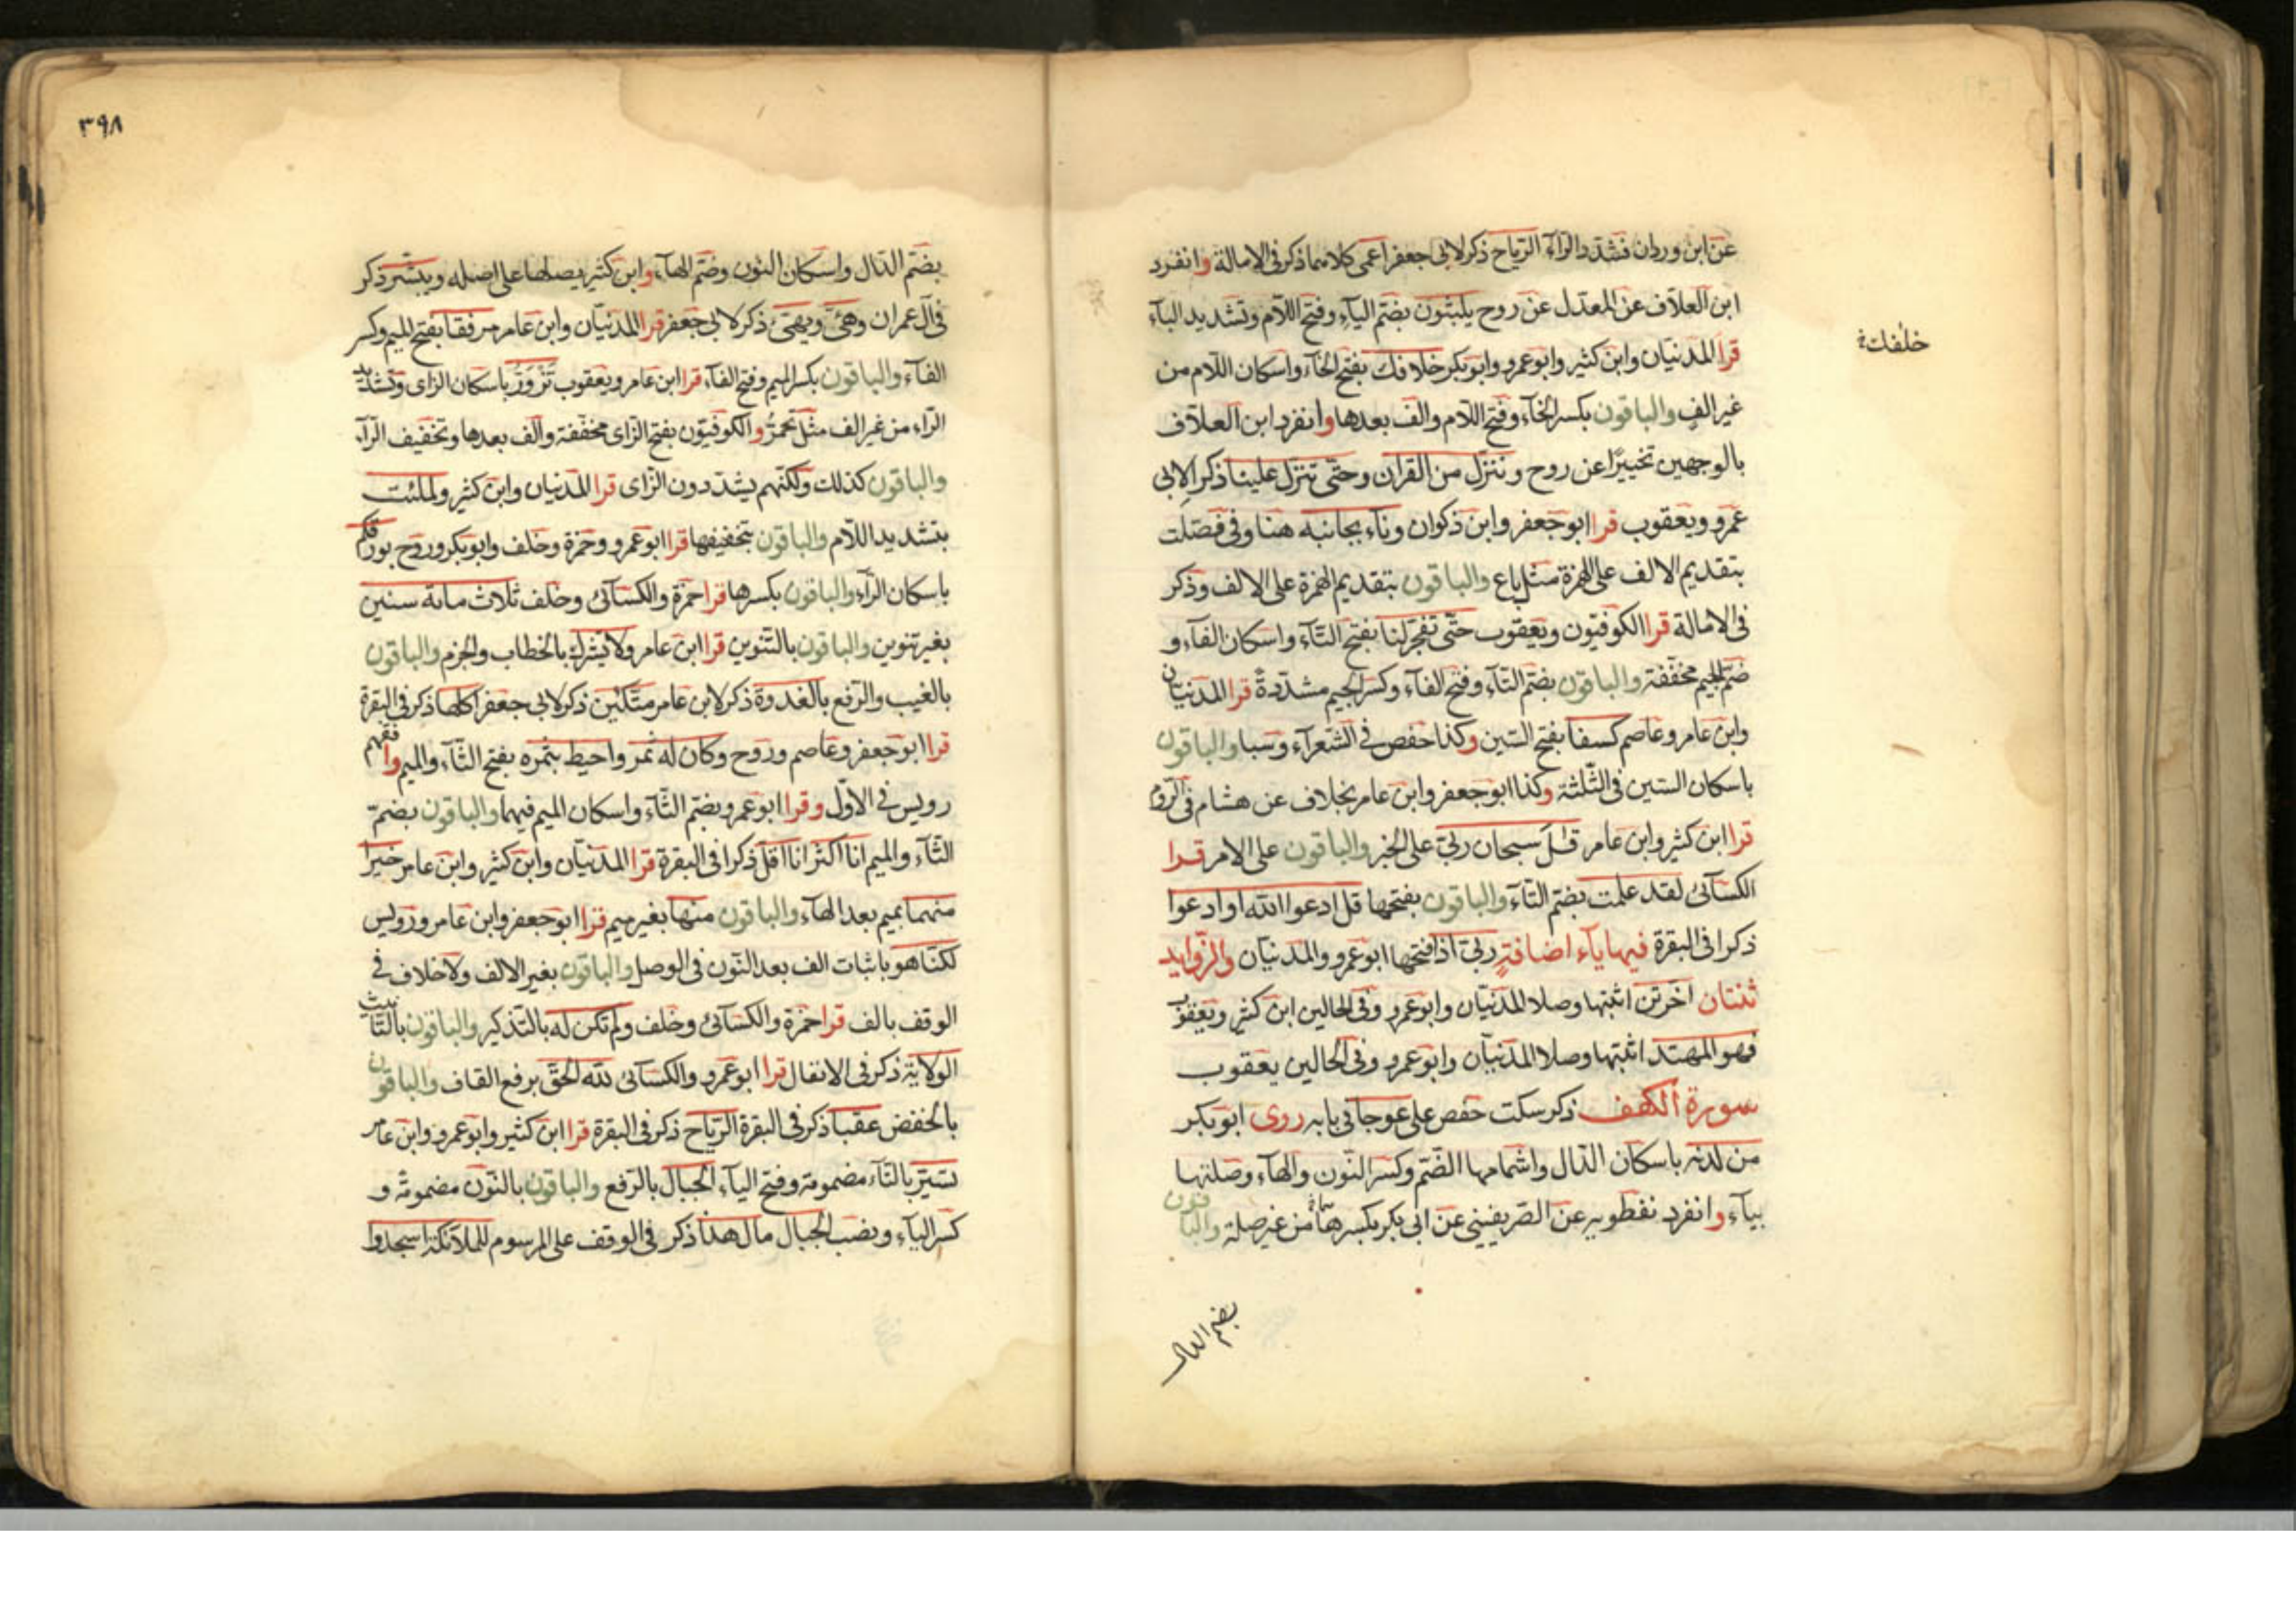 عن ابن وردان فشدد الراء الرياح ذكر لابي جعفر اعمى كلاهما ذكر في الامالة وانفرد
ابن العلاف عن المعدل عن روح يلبثون بضم الياء وفتح اللام وتشديد الباء
قرا المدنيان وابن كثير وابو عمرو وابو بكر خلافك بفتح الخاء واسكان اللام من
خلفك
غير الف والباقون بكسر الخاء وفتح اللام والف بعدها وانفرد ابن العلاف
بالوجهين تخييرا عن روح وننزل من القران وحتى تنزل علينا ذكرا لابي
عمرو ويعقوب قرا ابو جعفر وابن ذكوان وناء بجانبه هنا وفي فصلت
بتقديم الالف على الهمزة مثل باع والباقون بتقديم الهمزة على الالف وذكر
في الامالة قرا الكوفيون ويعقوب حتى تفجر لنا بفتح التاء واسكان الفاء و
ضم الجيم مخففة والباقون بضم التاء وفتح الفاء وكسر الجيم مشددة قرا المدنيان
وابن عامر وعاصم كسفا بفتح السين وكذا حفص في الشعراء وسبا والباقون
باسكان السين في الثلثة وكذا ابو جعفر وابن عامر بخلاف عن هشام في الروم
قرا ابن كثير وابن عامر قل سبحان ربي على الخبر والباقون على الامر قرا
الكسائي لقد علمت بضم التاء والباقون بفتحها قل ادعوا الله او ادعوا
ذكرا في البقرة فيها ياء اضافة ربي اذا فتحها ابو عمرو والمدنيان والزوايد
ثنتان اخرتن اثبتها وصلا المدنيان وابو عمرو وفي الحالين ابن كثير ويعقوب
فهو المهتد اثبتها وصلا المدنيان وابو عمرو وفي الحالين يعقوب
سورة الكهف ذكر سكت حفص على عوجا في بابه روى ابو بكر
من لدنه باسكان الدال واشمامها الضم وكسر النون والهاء وصلتها
بياء وانفرد نفطويه عن الصريفيني عن ابي بكر بكسر هما من غير صلة والباقون
بضم الدال
٣٩٨
بضم الدال واسكان النون وضم الهاء وابن كثير يصلها على اصله ويبشر ذكر
في ال عمران وهيئ ويهيئ ذكر لابي جعفر قرا المدنيان وابن عامر مرفقا بفتح الميم وكسر
الفاء والباقون بكسر الميم وفتح الفاء قرا ابن عامر ويعقوب تزور باسكان الزاى وتشديد
الراء من غير الف مثل تحمر والكوفيون بفتح الزاى مخففة والف بعدها وتخفيف الراء
والباقون كذلك ولكنهم يشددون الزاى قرا المدنيان وابن كثير ولملئت
بتشديد اللام والباقون بتخفيفها قرا ابو عمرو وحمزة وخلف وابو بكر وروح بورقكم
باسكان الراء والباقون بكسرها قرا حمزة والكسائي وخلف ثلاث مائة سنين
بغير تنوين والباقون بالتنوين قرا ابن عامر ولا تشرك بالخطاب والجزم والباقون
بالغيب والرفع بالغدوة ذكر لابن عامر متكئين ذكر لابي جعفر اكلها ذكر في البقرة
قرا ابو جعفر وعاصم وروح وكان له ثمر واحيط بثمره بفتح الثاء والميم وافقهم
رويس في الاول وقرا ابو عمرو بضم الثاء واسكان الميم فيهما والباقون بضم
الثاء والميم انا اكثر انا اقل ذكرا في البقرة قرا المدنيان وابن كثير وابن عامر خيرا
منهما بميم بعد الهاء والباقون منها بغير ميم قرا ابو جعفر وابن عامر ورويس
لكنا هو باثبات الف بعد النون في الوصل والباقون بغير الالف ولا خلاف في
الوقف بالف قرا حمزة والكسائي وخلف ولم تكن له بالتذكير والباقون بالتانيث
الولاية ذكر في الانفال قرا ابو عمرو والكسائي لله الحق برفع القاف والباقون
بالخفض عقبا ذكر في البقرة الرياح ذكر في البقرة قرا ابن كثير وابو عمرو وابن عامر
تسير بالتاء مضمومة وفتح الياء الجبال بالرفع والباقون بالنون مضمومة و
كسر الياء ونصب الجبال مال هذا ذكر في الوقف على المرسوم للملائكة اسجدوا